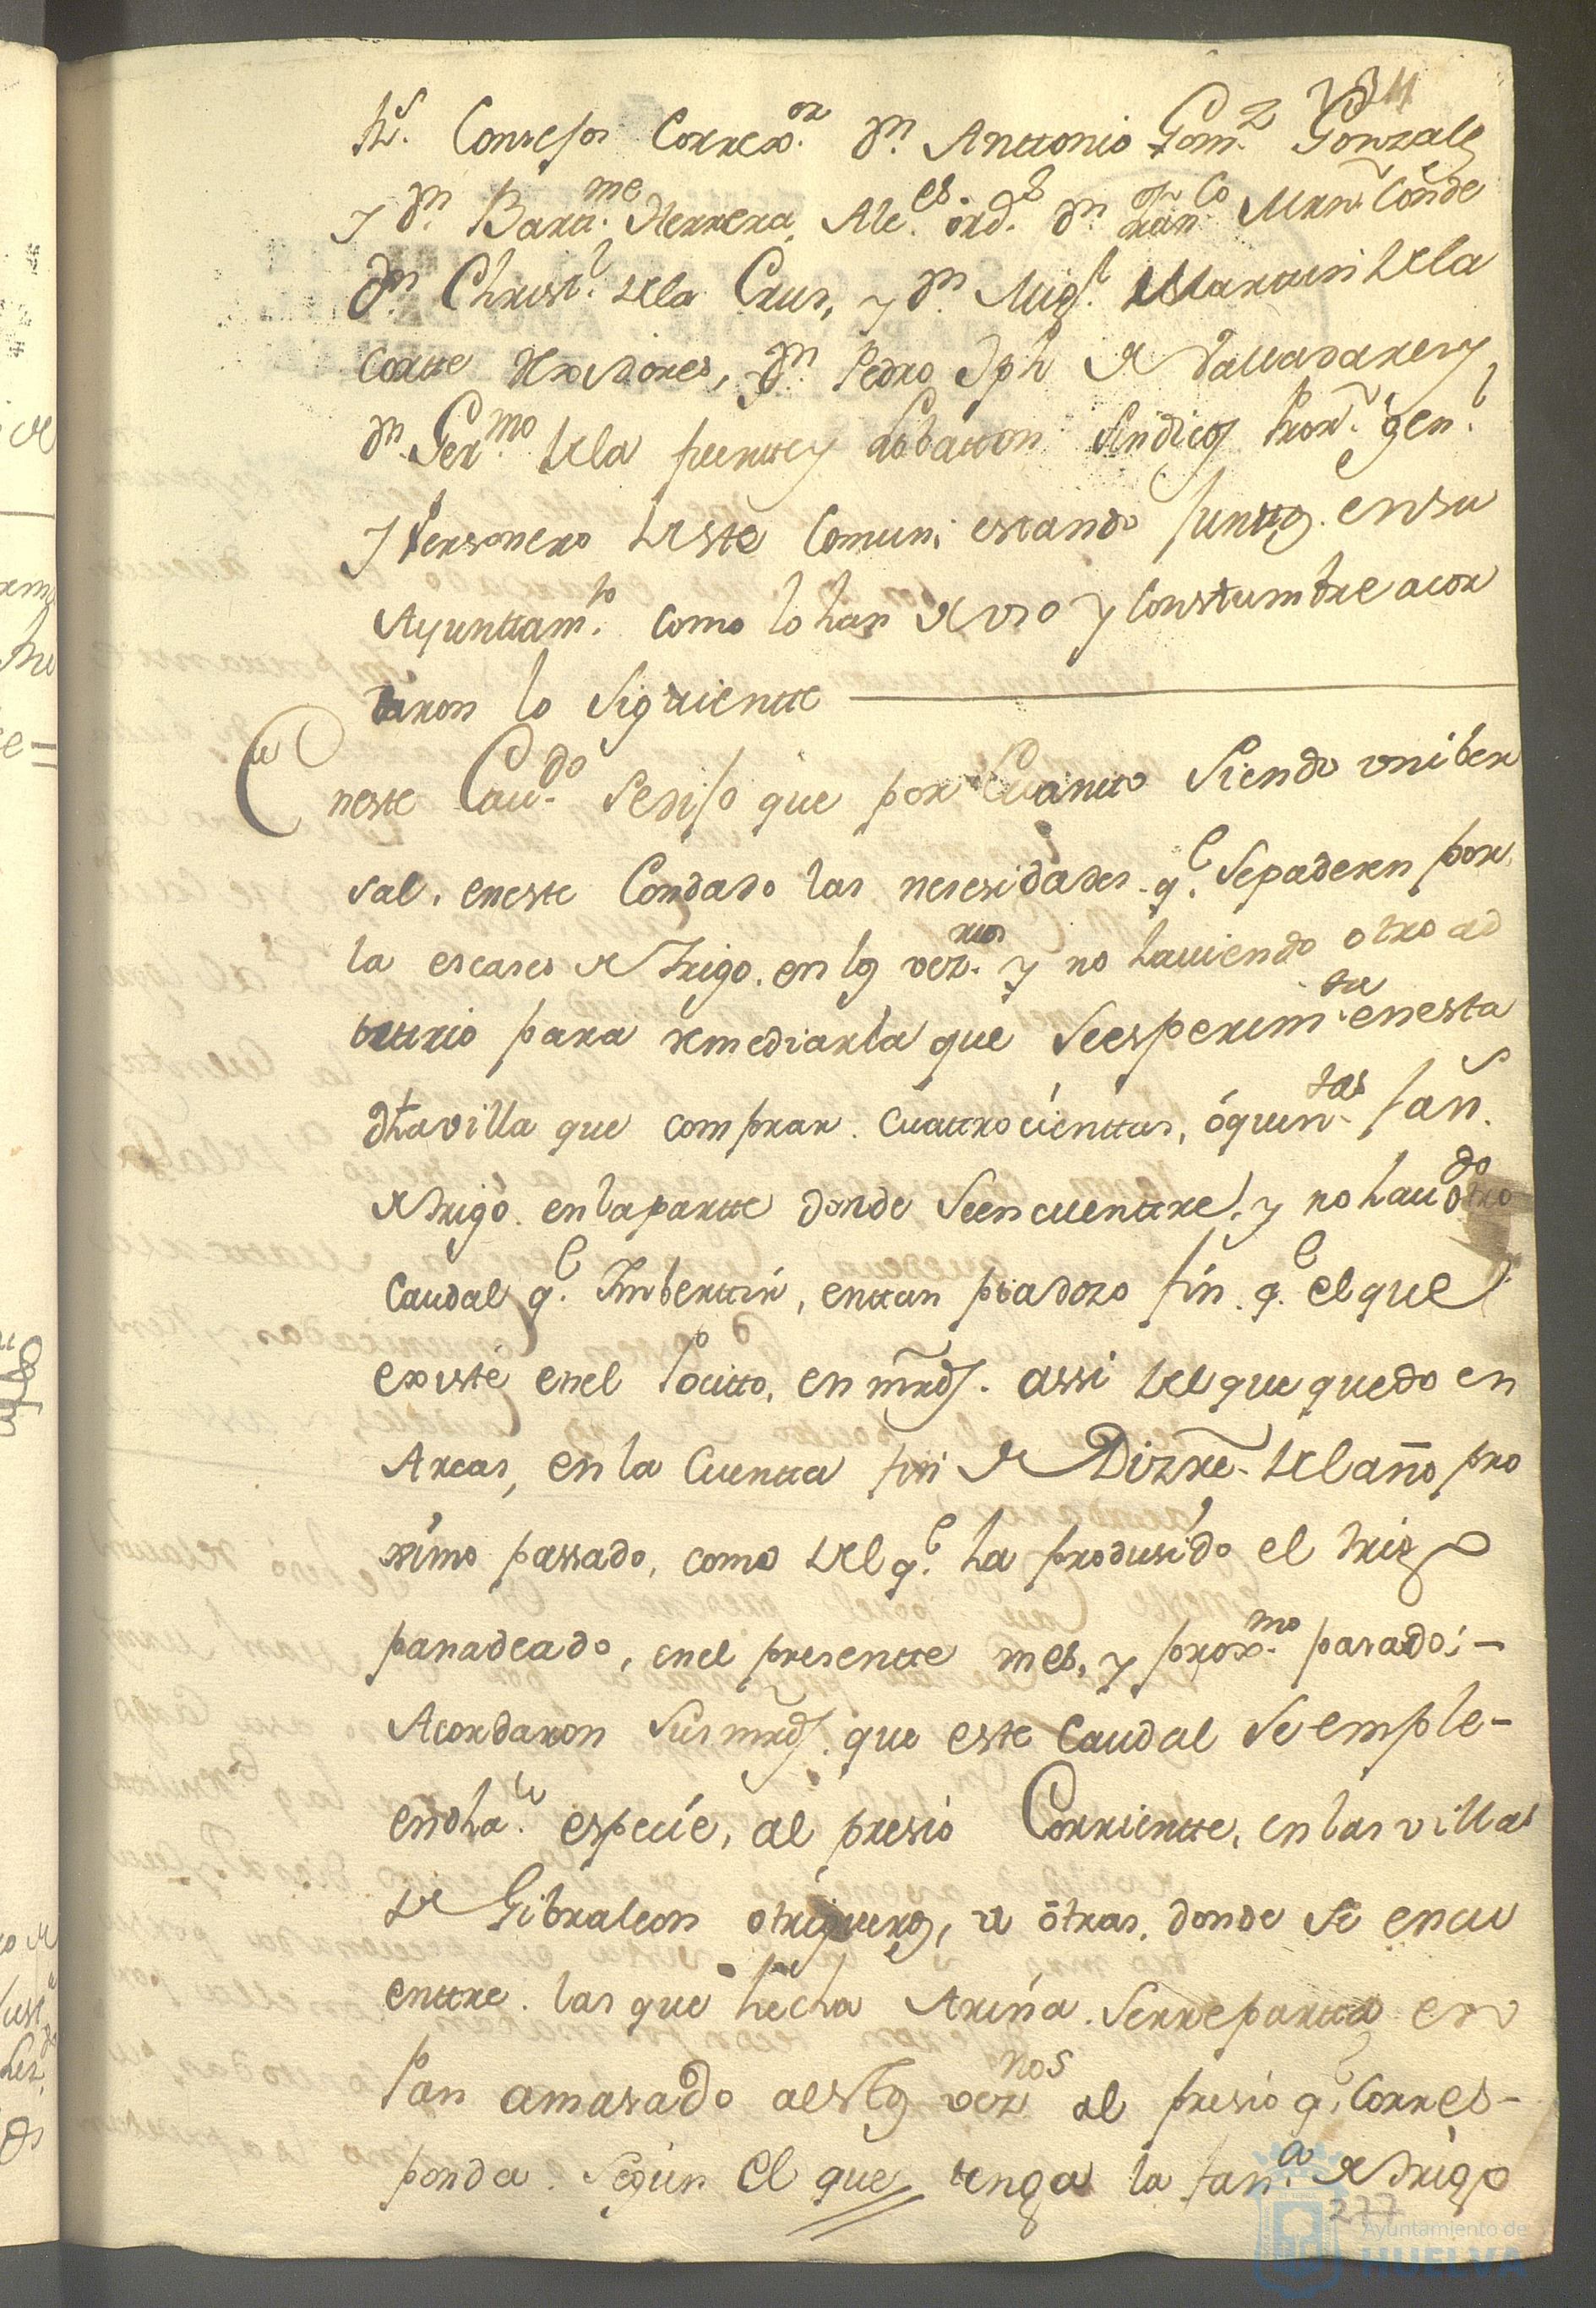 Rs. Consejos Correxor. Dn. Anttonio Gomz. Gonzales
y Dn. Barme. Herrera, Alces. ords. Dn. Franco. Mrn. Conde
Dn. Christl. de la Crus, y Dn. Migl. Martin de la
Cortte Rexidores, Dn. Pedro Jph de Valladares y
Dn. Germo. de la fuentte y Lobatton Sindicos Pror. genl.
y Personero deste Comun, estando Junttos en su
Ayunttamto. como lo han de uso y Constumbre acor
daron lo Siguientte
En este Cavdo. Se dijo que por Cuantto Siendo uniber
sal, en este Condado las nesesidades qe. Se padesen por
la escases de Trigo en los vezinos. y no haviendo otro ad
bitrio para remediarla que Se esperimta. en esta
dha villa que comprar Cuattrocienttas, ó quintas. fan.
de trigo en la partte donde Se encuenttre, y no havdo. otro
Caudal qe. Imberttir, en ttan piadozo fin qe. el que
existe en el Pocitto, en mrds. assi del que quedo en
Arcas, en la Cuentta fin de Dizre. del año pro
ximo passado, como del qe. ha produsido el trigo
panadeado, en el presentte mes, y proxmo. pasado;-
Acordaron Sus mrds. que este Caudal Se emple-
en dha. especie, al presio Corrientte, en las villas
de Gibraleon o trigueros, u otras, donde Se encu
enttre. las que hecha Arina Se rrepartta en
Pan amasado a estos veznos al presio qe. Corres-
ponda Segun el que tenga la fana. de trigo
277
Ayuntamiento de
HUELVA